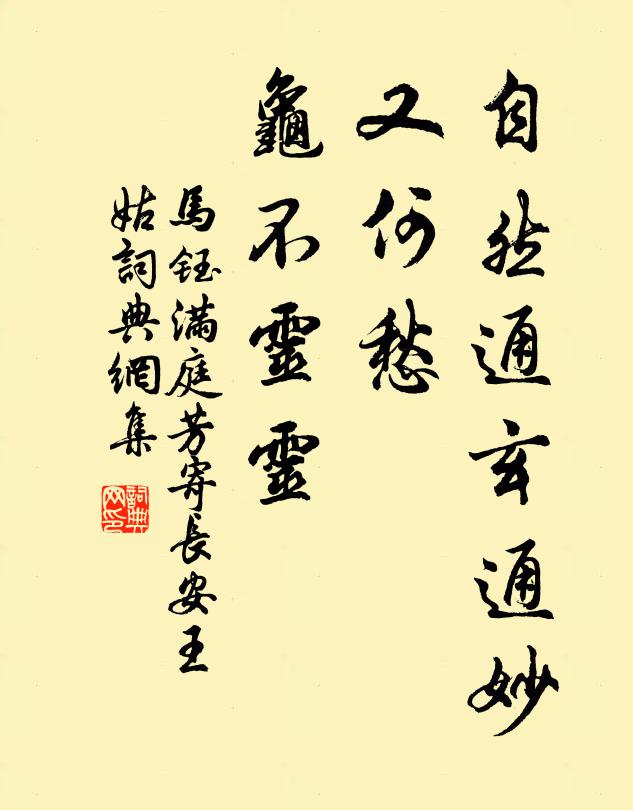 自然通玄通妙
又何愁
龜不靈靈
馬鈺滿庭芳寄長安王
姑詞典網集
詞典
网印